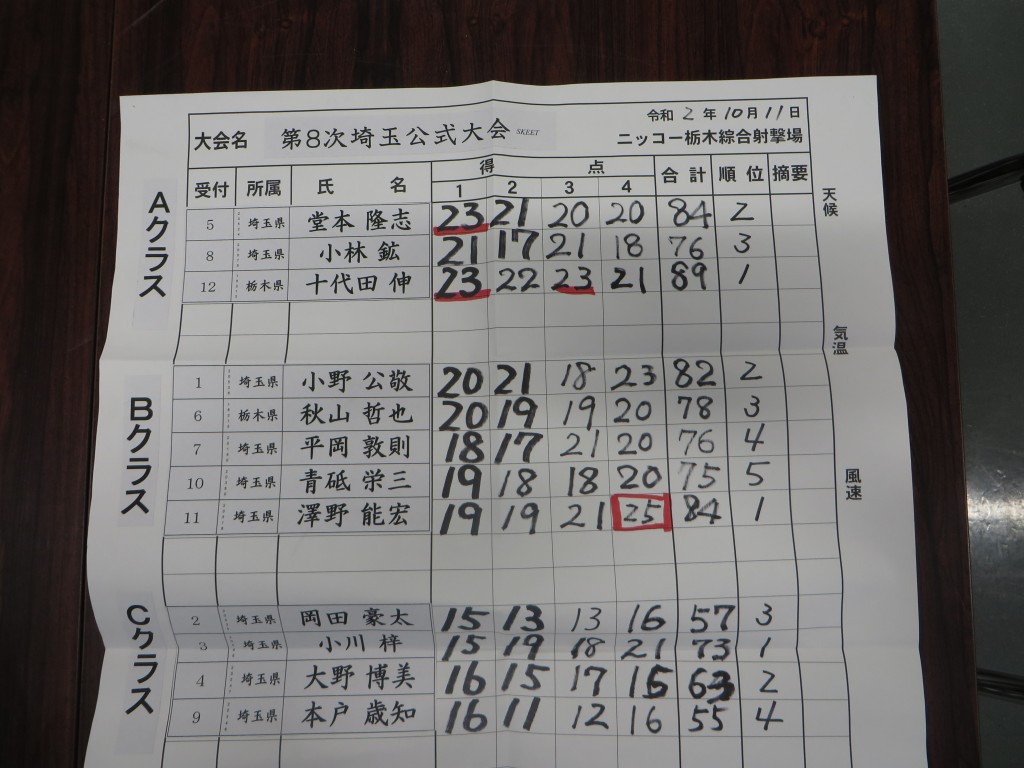 令和 2 年 10月 11日
大会名 第8次埼玉公式大会 SKEET ニッコー栃木綜合射撃場
受付 所属 氏 名 得 点 合計 順位 摘要
1 2 3 4
Aクラス
5 埼玉県 堂本 隆志 23 21 20 20 84 2
8 埼玉県 小林 鉱 21 17 21 18 76 3
12 栃木県 十代田 伸 23 22 23 21 89 1
Bクラス
1 埼玉県 小野 公敬 20 21 18 23 82 2
6 栃木県 秋山 哲也 20 19 19 20 78 3
7 埼玉県 平岡 敦則 18 17 21 20 76 4
10 埼玉県 青砥 栄三 19 18 18 20 75 5
11 埼玉県 澤野 能宏 19 19 21 25 84 1
Cクラス
2 埼玉県 岡田 豪太 15 13 13 16 57 3
3 埼玉県 小川 梓 15 19 18 21 73 1
4 埼玉県 大野 博美 16 15 17 15 63 2
9 埼玉県 本戸 歳知 16 11 12 16 55 4
天候
気温
風速